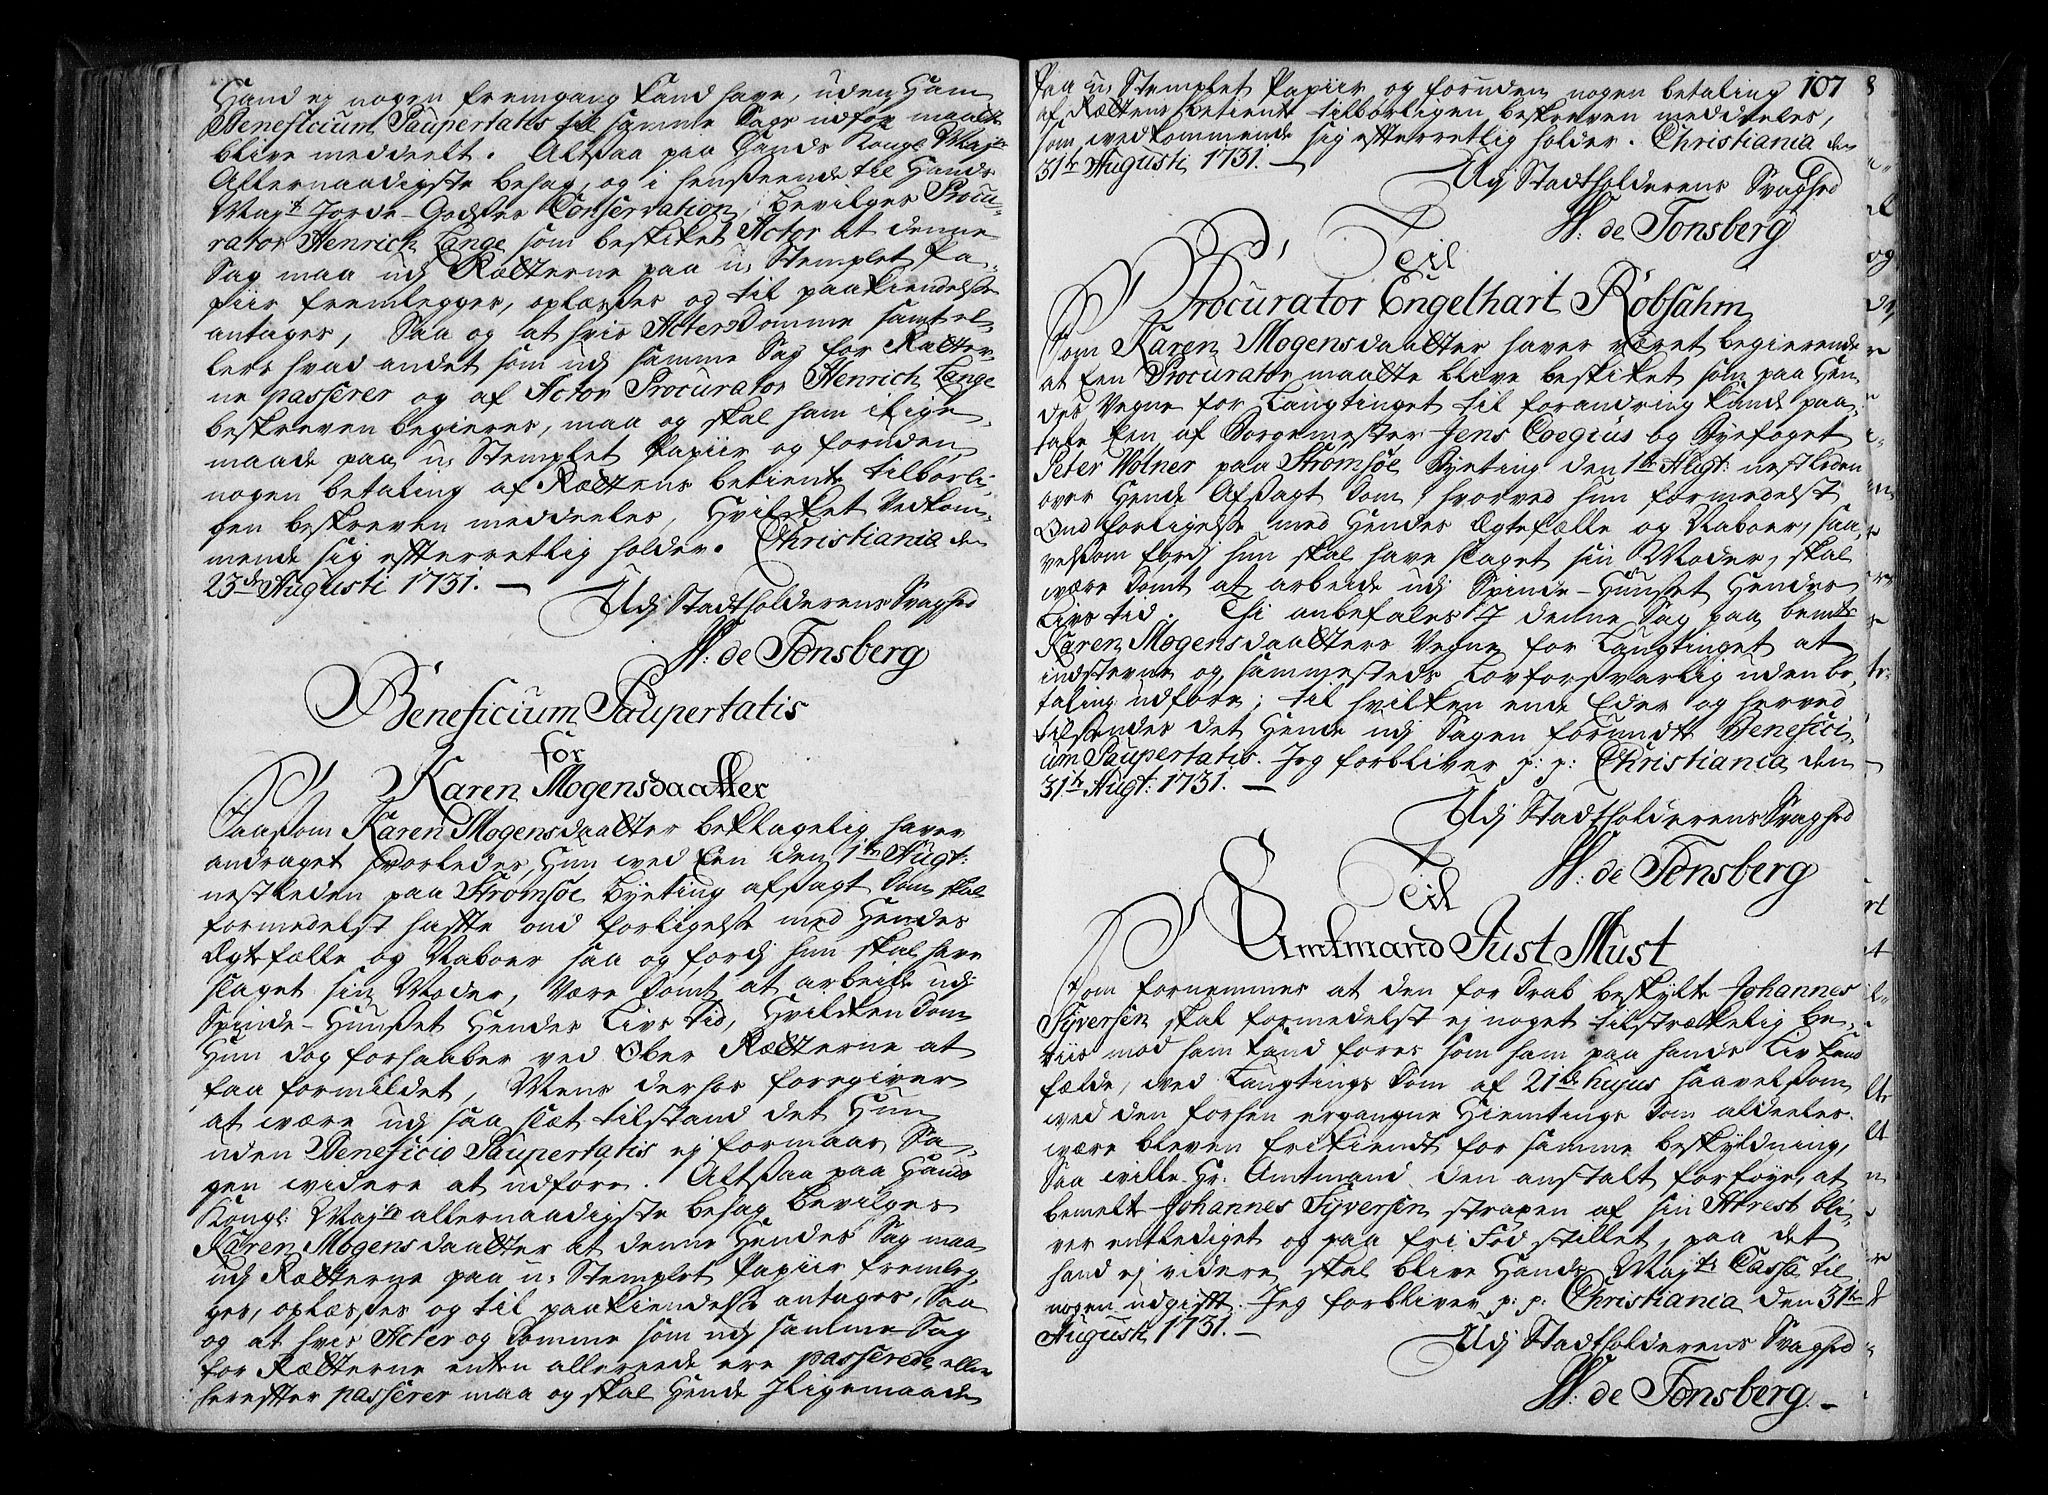 Hand ej nogen fremgang kand have, uden Ham
Beneficium Paupertatis til samme Sags udføx maatte
blive meddeelt. Altsaa paa Hands Kongl: Majts
Allernaadigste behag, og i henseende til Hands
Majts Jorde-Godses Conservation, bevilges Procu-
rator Henrich Lange som beskiket Actor at denne
Sag maa udj Rætterne paa u-Stemplet Pa-
piir fremlegges, oplæses og til paakiendelse
antages, Saa og at hvis Acter Domme samt el-
lers hvad andet som udj samme Sag for Rætter-
ne passerer og af Actor Procurator Henrich Lange
beskreven begieres, maa og skal ham ilige-
maade paa u-Stemplet Papiir og foruden
nogen betaling af Rættens betiente tilborli-
gen beskreven meddeeles, Hvilket Vedkom-
mende sig efterretlig holder. Christiania den
23de Augusti 1731. —
Udj Stadtholderens Svaghed
W: de Tonsberg
Beneficium Paupertatis
for
Karen Mogensdaatter
Saasom Karen Mogensdaatter beklagelig haver
andraget hvorledes Hun ved Een den 1te Augt:
nestleden paa Strømsøe Byeting afsagt Dom skal
formedelst hafte ond forligelse med Hendes
Ægtefælle og Naboer saa og fordj hun skal have
slaget sin Moder, være Dømt at arbeide udj
Spinde-Hunset Hendes Livs tid, Hvilken Dom
Hun dog forhaaber ved Ober Rætterne at
faa formildet, Mens derhos foregiver
at være udj saa slæt tilstand det Hun
uden Beneficio Paupertatis ej formaar Sa-
gen widere at udføre. Altsaa paa Hands
Kongl: Majts allernaadigste behag bevilges
Karen Mogensdaatter at denne Hendes Sag maa
udj Rætterne paa u-Stemplet Papiir fremleg-
ges, oplæses og til paakiendelse antages, Saa
og at hvis Acter og Domme som udj samme Sag
for Rætterne enten allereede ere passerede eller
herefter passerer maa og skal Hende Iligemaade
paa u-Stemplet Papiir og foruden nogen betaling 107
af Rættens betiente tilborligen beskreven meddeeles,
som wedkommende sig efterretlig holder. Christiania den
31te Augusti 1731. —
Udj Stadtholderens Svaghed
W: de Tonsberg
Til
Procurator Engelhart Robsahm
Som Karen Mogensdaatter haver været begierende
at Een Procurator maatte blive beskiket som paa Hen-
des Vegne for Laugtinget til forandring kunde paa-
tale Een af Borgemester Jens Coegius og Byefoget
Peter Wolner paa Strømsøe Byeting den 1te Augt: nestleden
over Hende Afsagt Dom, hvorved hun formedelst
Ond forligelse med Hendes Ægtefælle og Naboer, saa-
velsom fordj hun skal have slaget sin Moder, skal
være Dømt at arbeide udj Spinde-Hunset Hendes
Livs tid. Thi anbefales I denne Sag paa bemte
Karen Mogensdaatters Vegne for Laugtinget at
indstevne og sammesteds Lovforsvarlig uden be-
taling udføre; til hvilken ende Eder og herved
tilsendes det Hende udj Sagen forundte Benefici-
um Paupertatis. Jeg forbliver p: p: Christiania den
31te Augt: 1731. —
Udj Stadtholderens Svaghed
W: de Tonsberg
Til
Amtmand Just Must
Som fornemmes at den for Drab beskylte Johannes
Syversen skal formedelst ej noget tilstrækkelig Be-
viis mod ham kand føres som ham paa hands Liv kand
fælde, wed Laugtings Dom af 21de hujus saavelsom
wed den forhen ergangne Hiemtings Dom aldeeles
være bleven frikiendt for samme beskyldning,
Saa wille Hr: Amtmand den anstalt forføye, at
bemelte Johannes Syversen straxen af sin Arrest bli-
ver entlediget og paa fri Fod stillet, paa det
hand ej videre skal blive Hands Majts Cassa til
nogen udgift. Jeg forbliver p: p: Christiania den 31te
Augusti 1731. —
Udj Stadtholderens Svaghed
W: de Tonsberg. —